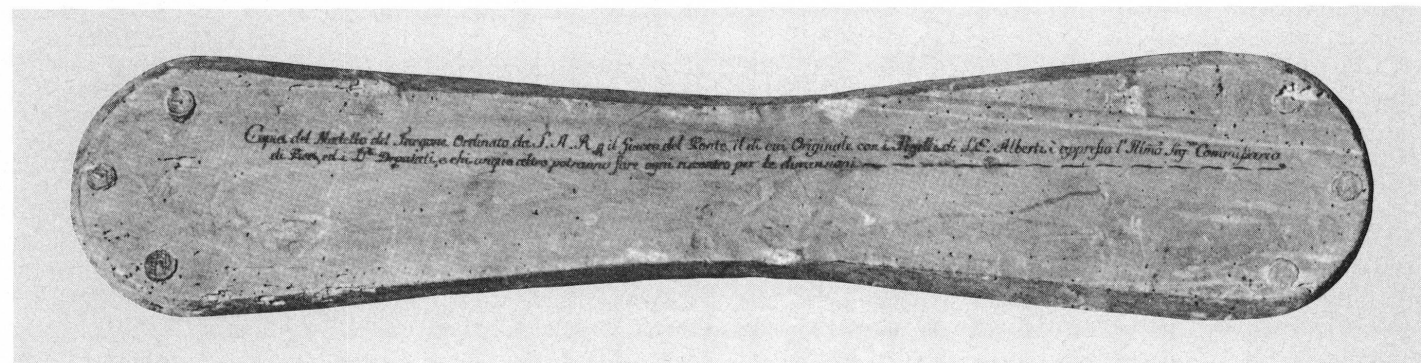 Copia del Modello del Targone Ordinato da S. A. R. p il Giuoco del Ponte, il di cui Originale con i Sigilli di S.E. Alberti è appresso l'Illmõ Sigre Commissario
di Pisa, ed i Dti Deputati, o chi unque altro potranno fare ogni riscontro per le dimensioni